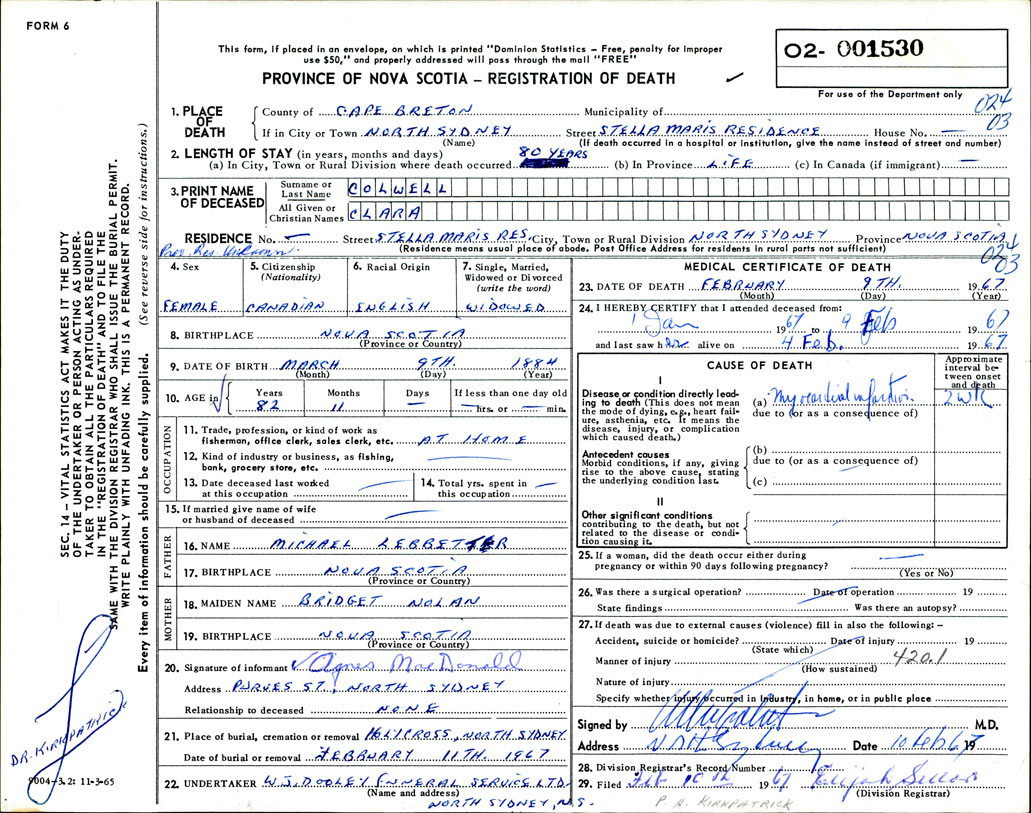 FORM 6
This form, if placed in an envelope, on which is printed "Dominion Statistics – Free, penalty for improper
use $50," and properly addressed will pass through the mail "FREE"
PROVINCE OF NOVA SCOTIA – REGISTRATION OF DEATH ✓
02- 001530
For use of the Department only
024
03
1. PLACE OF DEATH
County of CAPE BRETON Municipality of
If in City or Town NORTH SYDNEY Street STELLA MARIS RESIDENCE House No. —
(Name) (If death occurred in a hospital or institution, give the name instead of street and number)
2. LENGTH OF STAY (in years, months and days) 80 YEARS
(a) In City, Town or Rural Division where death occurred (b) In Province LIFE (c) In Canada (if immigrant) —
3. PRINT NAME OF DECEASED
Surname or Last Name COLWELL
All Given or Christian Names CLARA
RESIDENCE No. — Street STELLA MARIS RES. City, Town or Rural Division NORTH SYDNEY Province NOVA SCOTIA
(Residence means usual place of abode. Post Office Address for residents in rural parts not sufficient)
Prev. Res Unknown
024
03
4. Sex
FEMALE
5. Citizenship
(Nationality)
CANADIAN
6. Racial Origin
ENGLISH
7. Single, Married,
Widowed or Divorced
(write the word)
WIDOWED
8. BIRTHPLACE NOVA SCOTIA
(Province or Country)
9. DATE OF BIRTH MARCH 9TH. 1884
(Month) (Day) (Year)
10. AGE in
Years Months Days If less than one day old
82 11 — — hrs. or — min.
OCCUPATION
11. Trade, profession, or kind of work as
fisherman, office clerk, sales clerk, etc. AT HOME
12. Kind of industry or business, as fishing,
bank, grocery store, etc. —
13. Date deceased last worked
at this occupation —
14. Total yrs. spent in
this occupation —
15. If married give name of wife
or husband of deceased —
FATHER
16. NAME MICHAEL LEDBETTER
17. BIRTHPLACE NOVA SCOTIA
(Province or Country)
MOTHER
18. MAIDEN NAME BRIDGET NOLAN
19. BIRTHPLACE NOVA SCOTIA
(Province or Country)
20. Signature of informant Agnes MacDonald
Address PURVES ST., NORTH SYDNEY
Relationship to deceased NONE
21. Place of burial, cremation or removal HOLY CROSS, NORTH SYDNEY
Date of burial or removal FEBRUARY 11TH. 1967
22. UNDERTAKER W.J. DOOLEY FUNERAL SERVICE LTD.
(Name and address)
NORTH SYDNEY, N.S.
MEDICAL CERTIFICATE OF DEATH
23. DATE OF DEATH FEBRUARY 9TH. 1967
(Month) (Day) (Year)
24. I HEREBY CERTIFY that I attended deceased from:
1 Jan 1967 to 9 Feb 67
and last saw her alive on 4 Feb. 1967
CAUSE OF DEATH
Approximate
interval be-
tween onset
and death
I
Disease or condition directly lead-
ing to death (This does not mean
the mode of dying, e.g., heart fail-
ure, asthenia, etc. It means the
disease, injury, or complication
which caused death.)
(a) Myocardial infarction 2 WK
due to (or as a consequence of)
Antecedent causes
Morbid conditions, if any, giving
rise to the above cause, stating
the underlying condition last.
(b)
due to (or as a consequence of)
(c)
II
Other significant conditions
contributing to the death, but not
related to the disease or condi-
tion causing it.
25. If a woman, did the death occur either during
pregnancy or within 90 days following pregnancy? —
(Yes or No)
26. Was there a surgical operation? Date of operation 19
State findings Was there an autopsy?
27. If death was due to external causes (violence) fill in also the following: –
Accident, suicide or homicide? Date of injury 19
(State which)
Manner of injury 420.1
(How sustained)
Nature of injury
Specify whether injury occurred in Industry, in home, or in public place
Signed by M.D.
Address North Sydney Date 10 Feb 67 19
28. Division Registrar's Record Number
29. Filed Feb 10th 1967
(Division Registrar)
P. A. KIRKPATRICK
SEC. 14 – VITAL STATISTICS ACT MAKES IT THE DUTY
OF THE UNDERTAKER OR PERSON ACTING AS UNDER-
TAKER TO OBTAIN ALL THE PARTICULARS REQUIRED
IN THE "REGISTRATION OF DEATH" AND TO FILE THE
SAME WITH THE DIVISION REGISTRAR WHO SHALL ISSUE THE BURIAL PERMIT.
WRITE PLAINLY WITH UNFADING INK. THIS IS A PERMANENT RECORD.
Every item of information should be carefully supplied. (See reverse side for instructions.)
DR. KIRKPATRICK
9004-3.2: 11-3-65